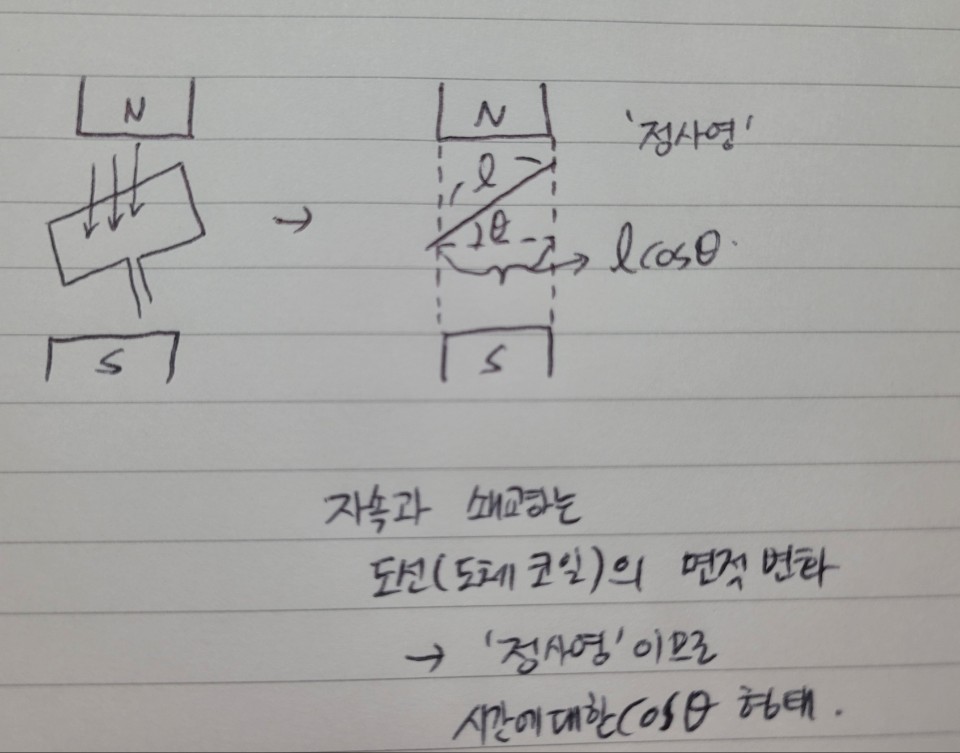 N
N
'정사영'
l
θ
l cosθ
→
S
S
자속과 쇄교하는
도선(도체 코일)의 면적 변화
→ '정사영'이므로
시간에 대한 cosθ 형태.